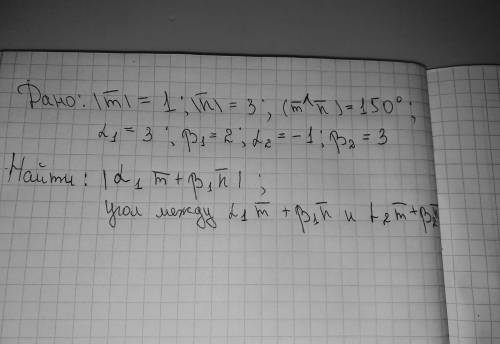 Дано: |m̅| = 1; |n̅| = 3; (m̅^n̅) = 150°;
α₁ = 3; β₁ = 2; α₂ = -1; β₂ = 3
Найти: |α₁ m̅ + β₁ n̅|;
Угол между α₁ m̅ + β₁ n̅ и α₂ m̅ + β₂ n̅